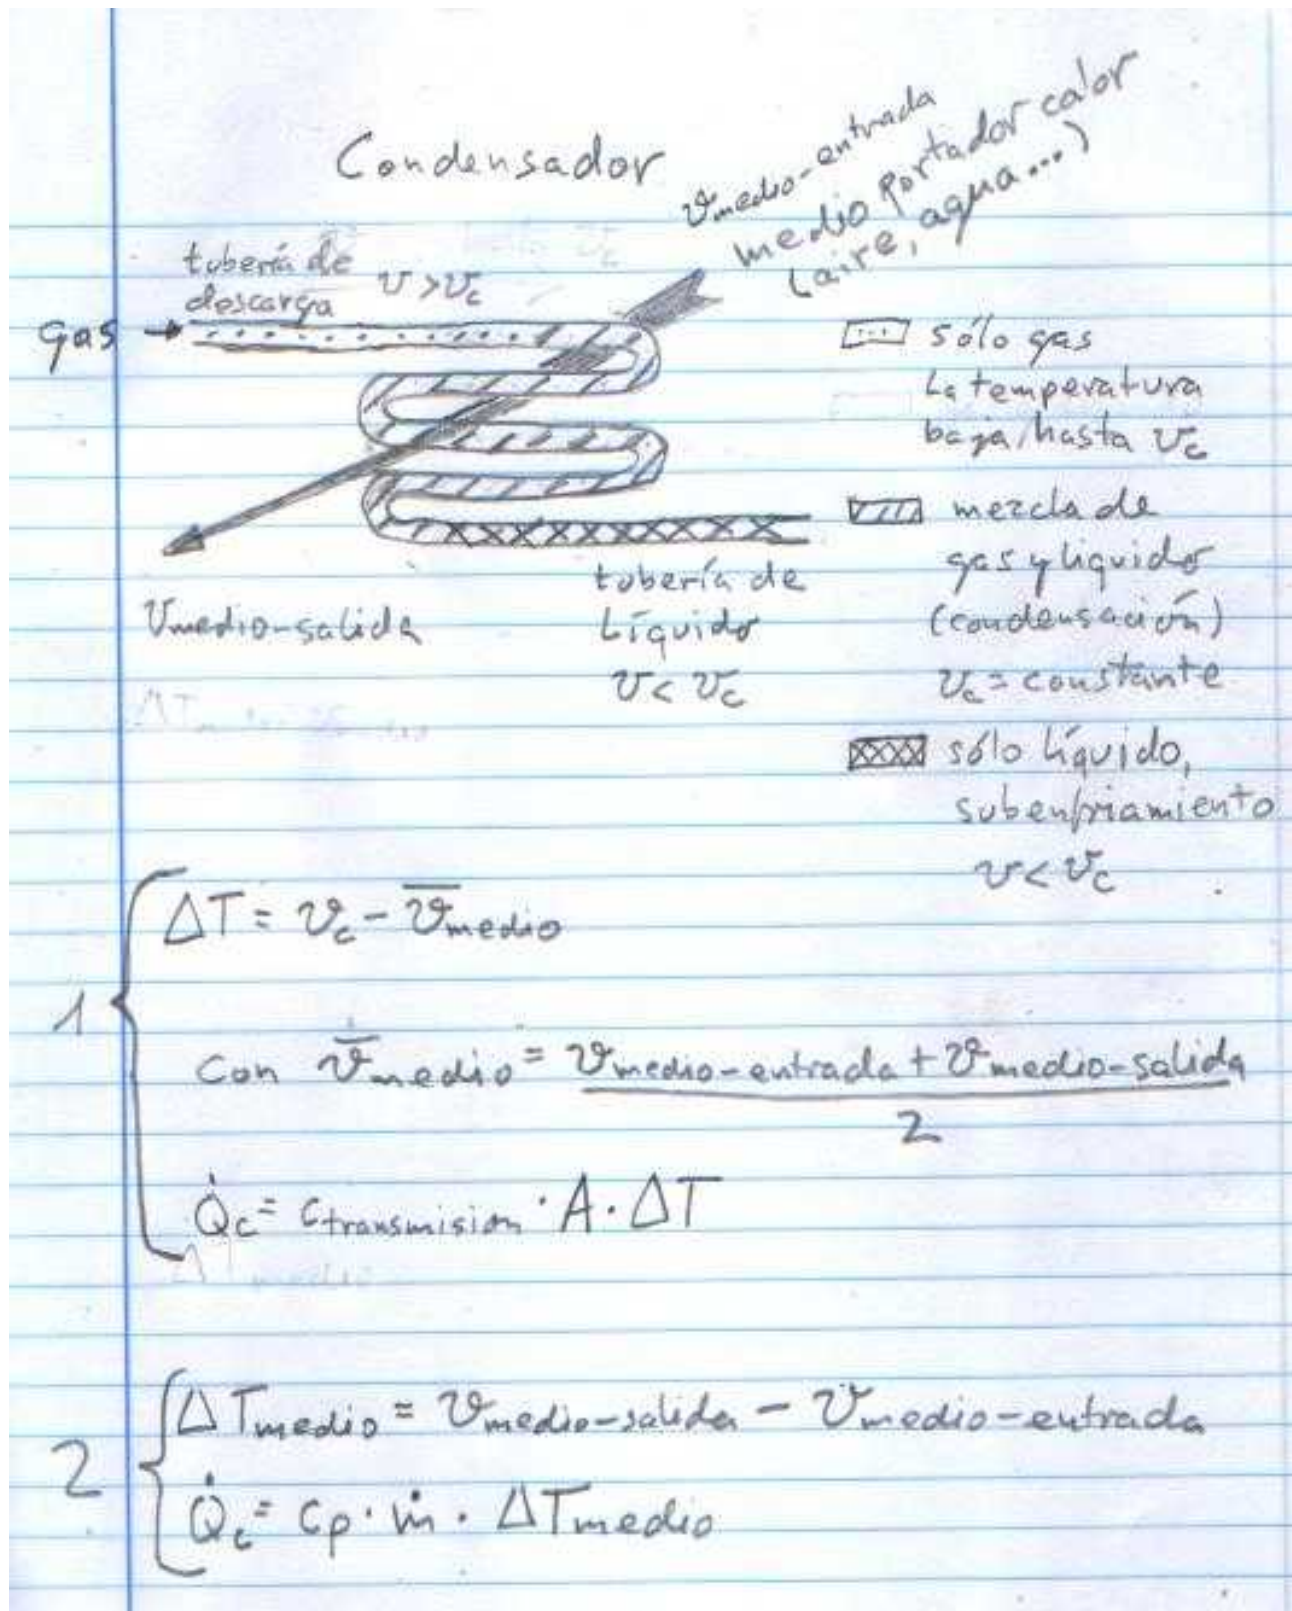 Condensador
ϑmedio-entrada
medio portador calor
(aire, agua...)
tubería de
descarga
ϑ>ϑc
gas →
sólo gas
La temperatura
baja hasta ϑc
mezcla de
gas y líquido
(condensación)
ϑc = constante
sólo líquido,
subenfriamiento
ϑ<ϑc
ϑmedio-salida
tubería de
Líquido
ϑ<ϑc
1
ΔT = ϑc - ϑ̅medio
con ϑ̅medio = ϑmedio-entrada + ϑmedio-salida
2
Q̇c = Ctransmision · A · ΔT
2
ΔTmedio = ϑmedio-salida - ϑmedio-entrada
Q̇c = cp · ṁ · ΔTmedio